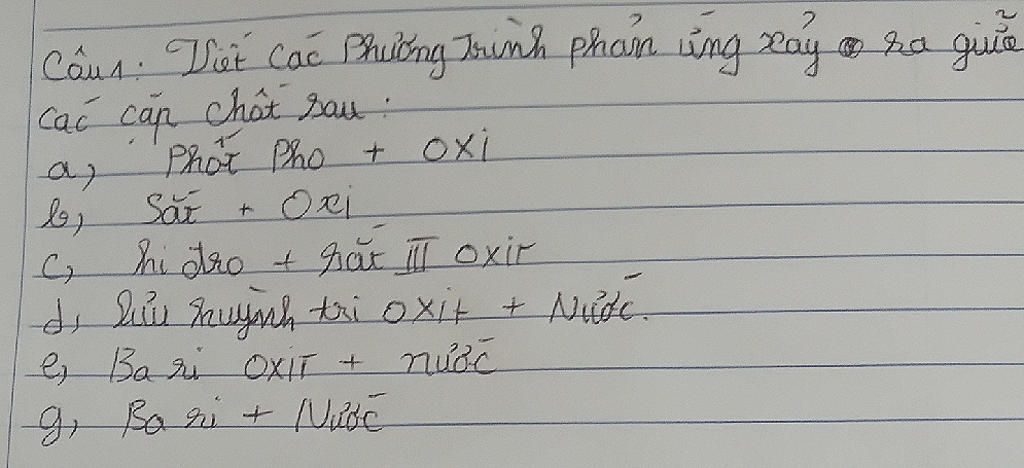 Câu 1: Viết các Phương Trình phản ứng xảy ra giữa
các cặp chất sau:
a, Phốt Pho + oxi
b, Sắt + Oxi
c, hi đro + sắt III oxit
d, lưu huỳnh tri oxit + Nước.
e, Ba ri oxit + nước
g, Ba ri + Nước